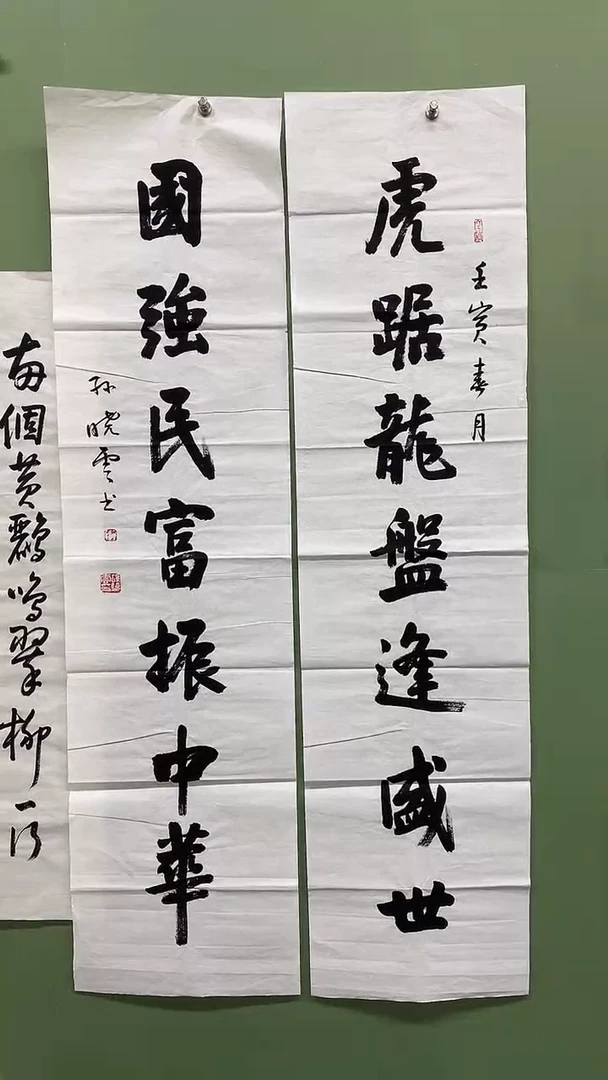 壬寅春月
虎踞龍盤逢盛世
國強民富振中華
孫曉雲书
兩個黃鸝鳴翠柳一行